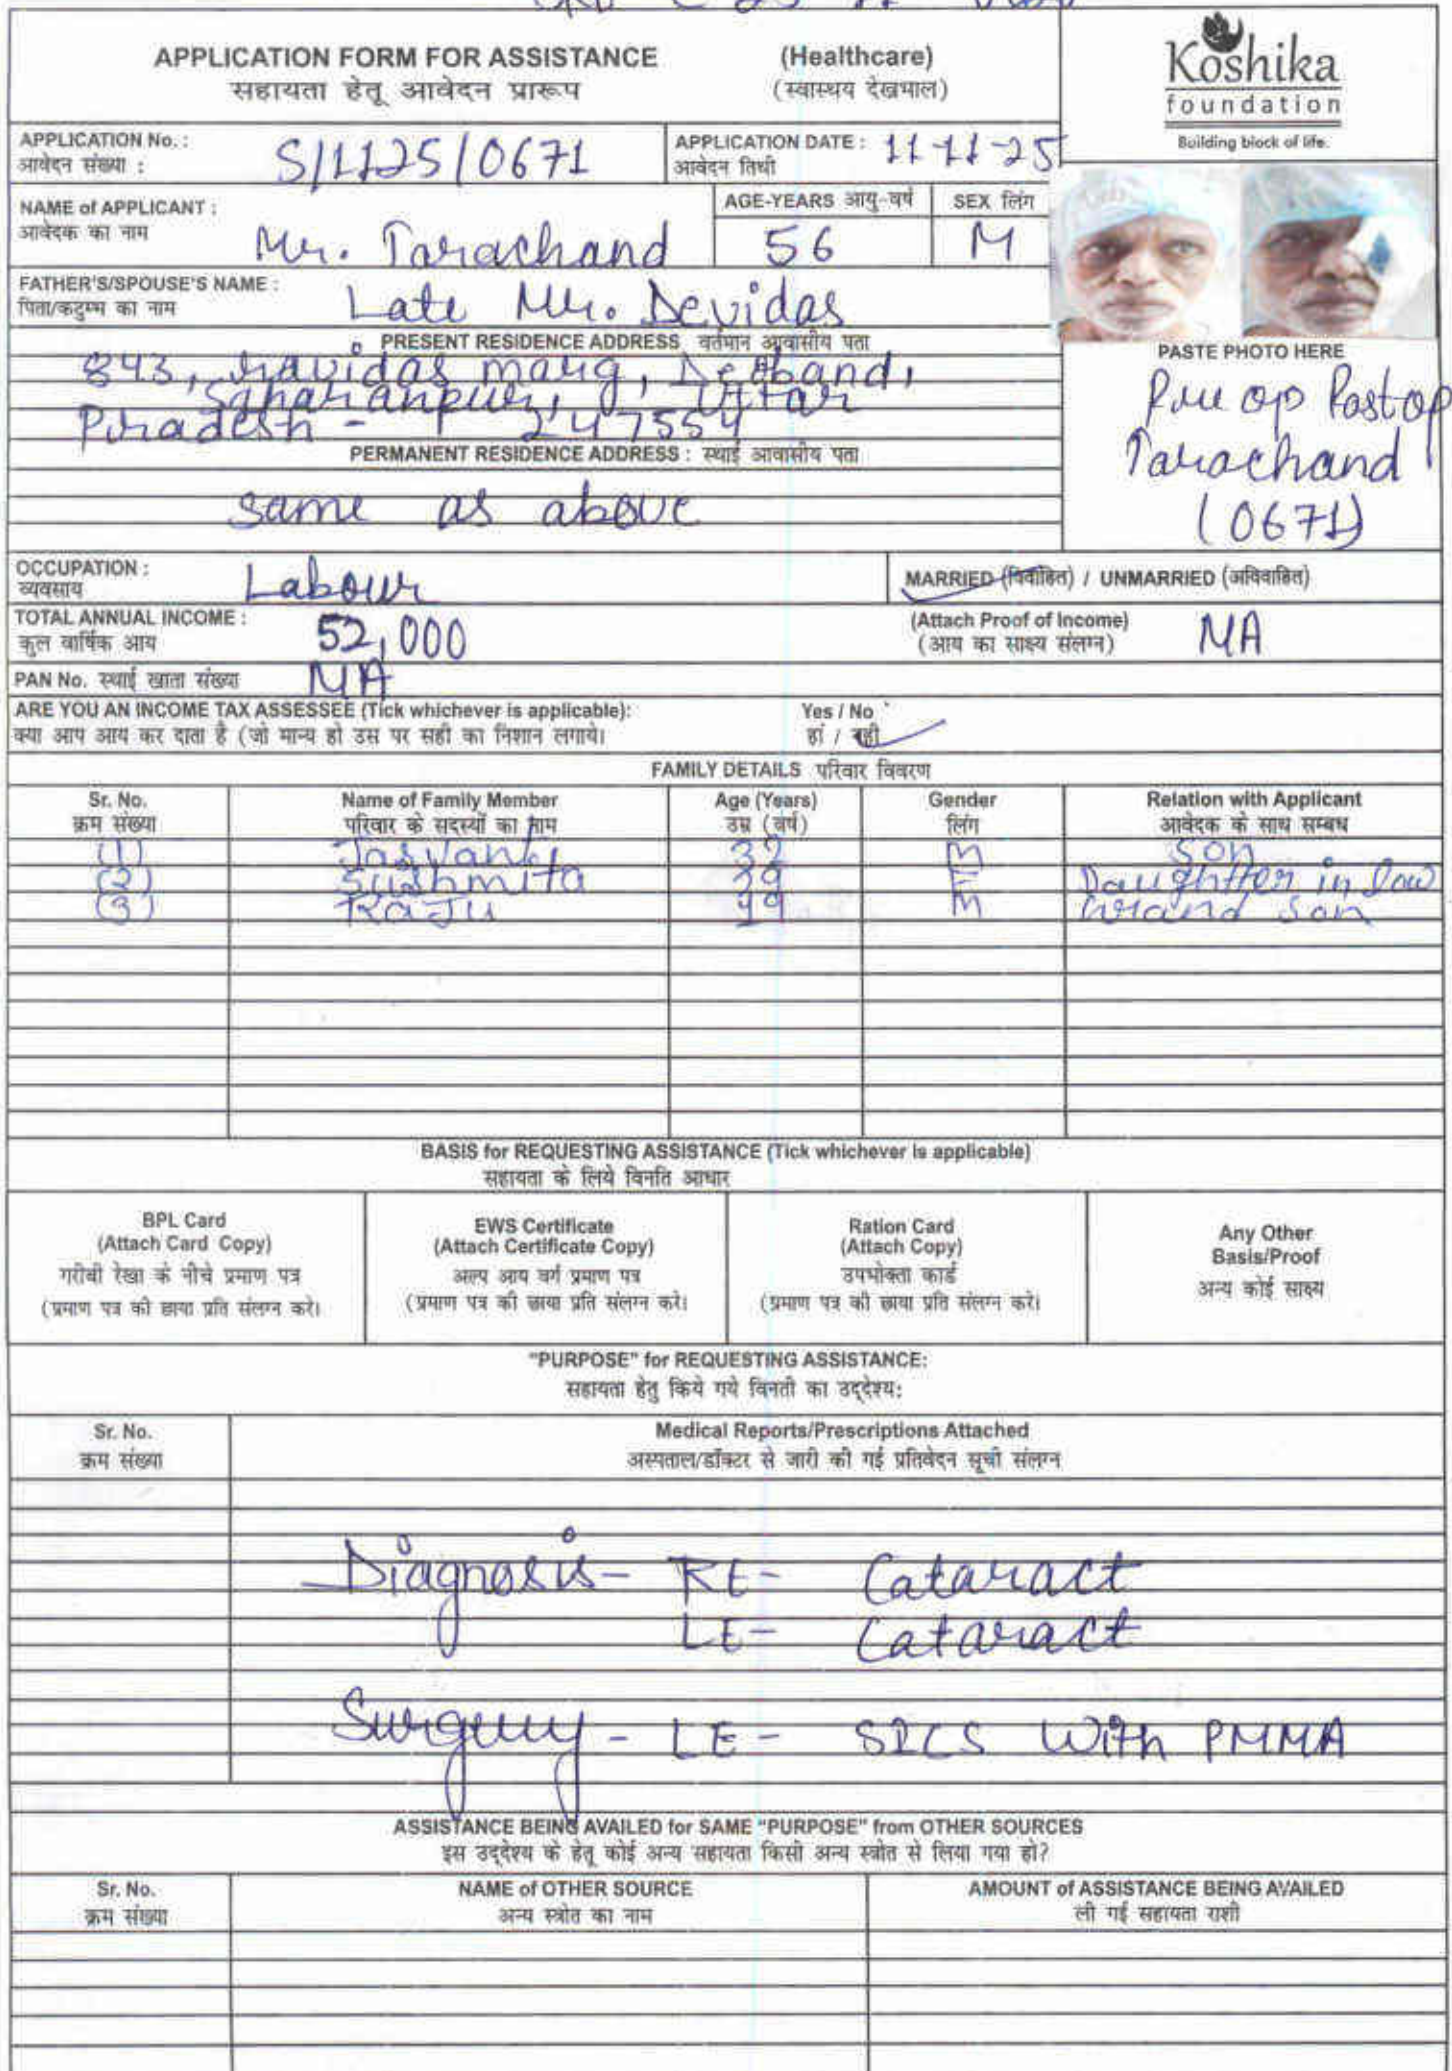 APPLICATION FORM FOR ASSISTANCE (Healthcare)
सहायता हेतू आवेदन प्रारूप (स्वास्थय देखभाल)
Koshika
foundation
Building block of life.
APPLICATION No. : S/1125/0671 APPLICATION DATE : 11-11-25
आवेदन संख्या : आवेदन तिथी
NAME of APPLICANT : Mr. Tarachand AGE-YEARS आयु-वर्ष 56 SEX लिंग M
आवेदक का नाम
FATHER'S/SPOUSE'S NAME : Late Mr. Devidas
पिता/कटुम्भ का नाम
PRESENT RESIDENCE ADDRESS वर्तमान आवासीय पता
843, ravidas marg, Deoband,
Saharanpur, Uttar
Pradesh - 247554
PERMANENT RESIDENCE ADDRESS : स्थाई आवासीय पता
same as above
PASTE PHOTO HERE
Pre op Post op
Tarachand
(0671)
OCCUPATION : Labour MARRIED (विवाहित) / UNMARRIED (अविवाहित)
व्यवसाय
TOTAL ANNUAL INCOME : 52,000 (Attach Proof of Income) NA
कुल वार्षिक आय (आय का साक्ष्य संलग्न)
PAN No. स्थाई खाता संख्या NA
ARE YOU AN INCOME TAX ASSESSEE (Tick whichever is applicable): Yes / No
क्या आप आय कर दाता है (जो मान्य हो उस पर सही का निशान लगाये। हां / नही
FAMILY DETAILS परिवार विवरण
Sr. No. Name of Family Member Age (Years) Gender Relation with Applicant
क्रम संख्या परिवार के सदस्यों का नाम उम्र (वर्ष) लिंग आवेदक के साथ सम्बध
(1) Jasvant 32 M Son
(2) Sushmita Daughtter in Law
(3) Raju M Grand Son
BASIS for REQUESTING ASSISTANCE (Tick whichever is applicable)
सहायता के लिये विनति आधार
BPL Card
(Attach Card Copy)
गरीबी रेखा के नीचे प्रमाण पत्र
(प्रमाण पत्र की छाया प्रति संलग्न करे।
EWS Certificate
(Attach Certificate Copy)
अल्प आय वर्ग प्रमाण पत्र
(प्रमाण पत्र की छाया प्रति संलग्न करे।
Ration Card
(Attach Copy)
उपभोक्ता कार्ड
(प्रमाण पत्र की छाया प्रति संलग्न करे।
Any Other
Basis/Proof
अन्य कोई साक्ष्य
"PURPOSE" for REQUESTING ASSISTANCE:
सहायता हेतु किये गये विनती का उद्देश्य:
Sr. No. Medical Reports/Prescriptions Attached
क्रम संख्या अस्पताल/डॉक्टर से जारी की गई प्रतिवेदन सूची संलग्न
Diagnosis - RE - Cataract
LE - Cataract
Surgery - LE - SICS With PMMA
ASSISTANCE BEING AVAILED for SAME "PURPOSE" from OTHER SOURCES
इस उद्देश्य के हेतू कोई अन्य सहायता किसी अन्य स्त्रोत से लिया गया हो?
Sr. No. NAME of OTHER SOURCE AMOUNT of ASSISTANCE BEING AVAILED
क्रम संख्या अन्य स्त्रोत का नाम ली गई सहायता राशी